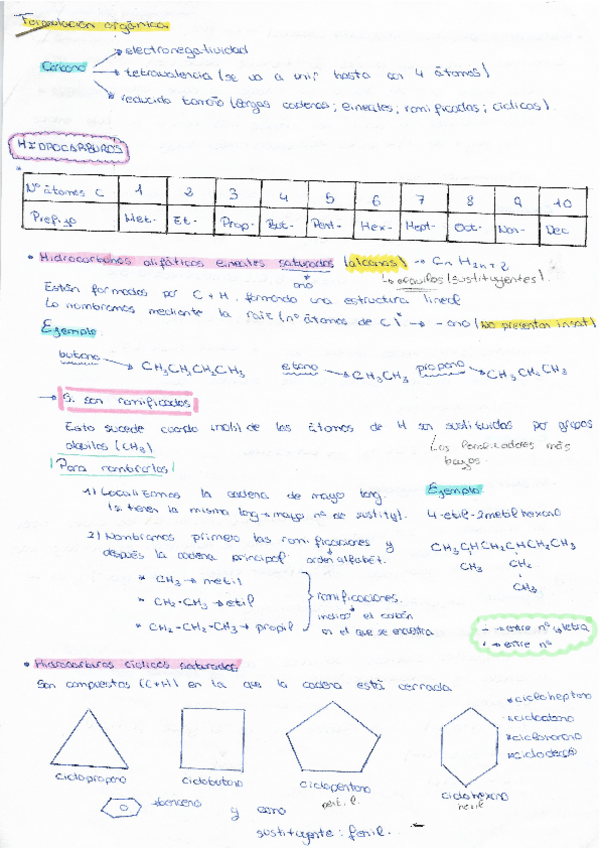 Formulación orgánica
→ electronegatividad
Carbono → tetravalencia (se va a unir hasta con 4 átomos)
→ reducido tamaño (largas cadenas; lineales; ramificadas; cíclicas).
HIDROCARBUROS
*
Nº átomos C 1 2 3 4 5 6 7 8 9 10
Prefijo Met- Et- Prop- But- Pent- Hex- Hept- Oct- Non- Dec
• Hidrocarburos alifáticos lineales saturados (alcanos) → CnH2n+2
ano
↳ alquilos (sustituyentes).
Están formados por C + H, formando una estructura lineal
Lo nombramos mediante la raíz (nº átomos de C)* → -ano (no presentan insat)
Ejemplo
butano → CH3CH2CH2CH3 etano → CH3CH3 propano → CH3CH2CH3
→ Si son ramificados
Esto sucede cuando uno(s) de los átomos de H son sustituidos por grupos
alquilos (CH3)
más
bajos.
Para nombrarlos
1) Localizamos la cadena de mayor long.
(si tienen la misma long → mayor nº de sustity).
Ejemplo
4-etil-2metilhexano
2) Nombramos primero las ramificaciones y
después la cadena principal orden alfabét.
CH3CHCH2CHCH2CH3
CH3 CH2
CH3
* CH3 → metil
* CH2-CH3 → etil
* CH2-CH2-CH3 → propil
ramificaciones.
indico el carbón
en el que se encuentra
- → entre nº y letra
, → entre nº
• Hidrocarburos cíclicos saturados
Son compuestos (C+H) en la que la cadena está cerrada
ciclopropano
ciclobutano
ciclopentano
ciclohexano
* cicloheptano
* ciclooctano
* ciclononano
* ciclodecano
→ benceno y como
sustituyente: fenil.